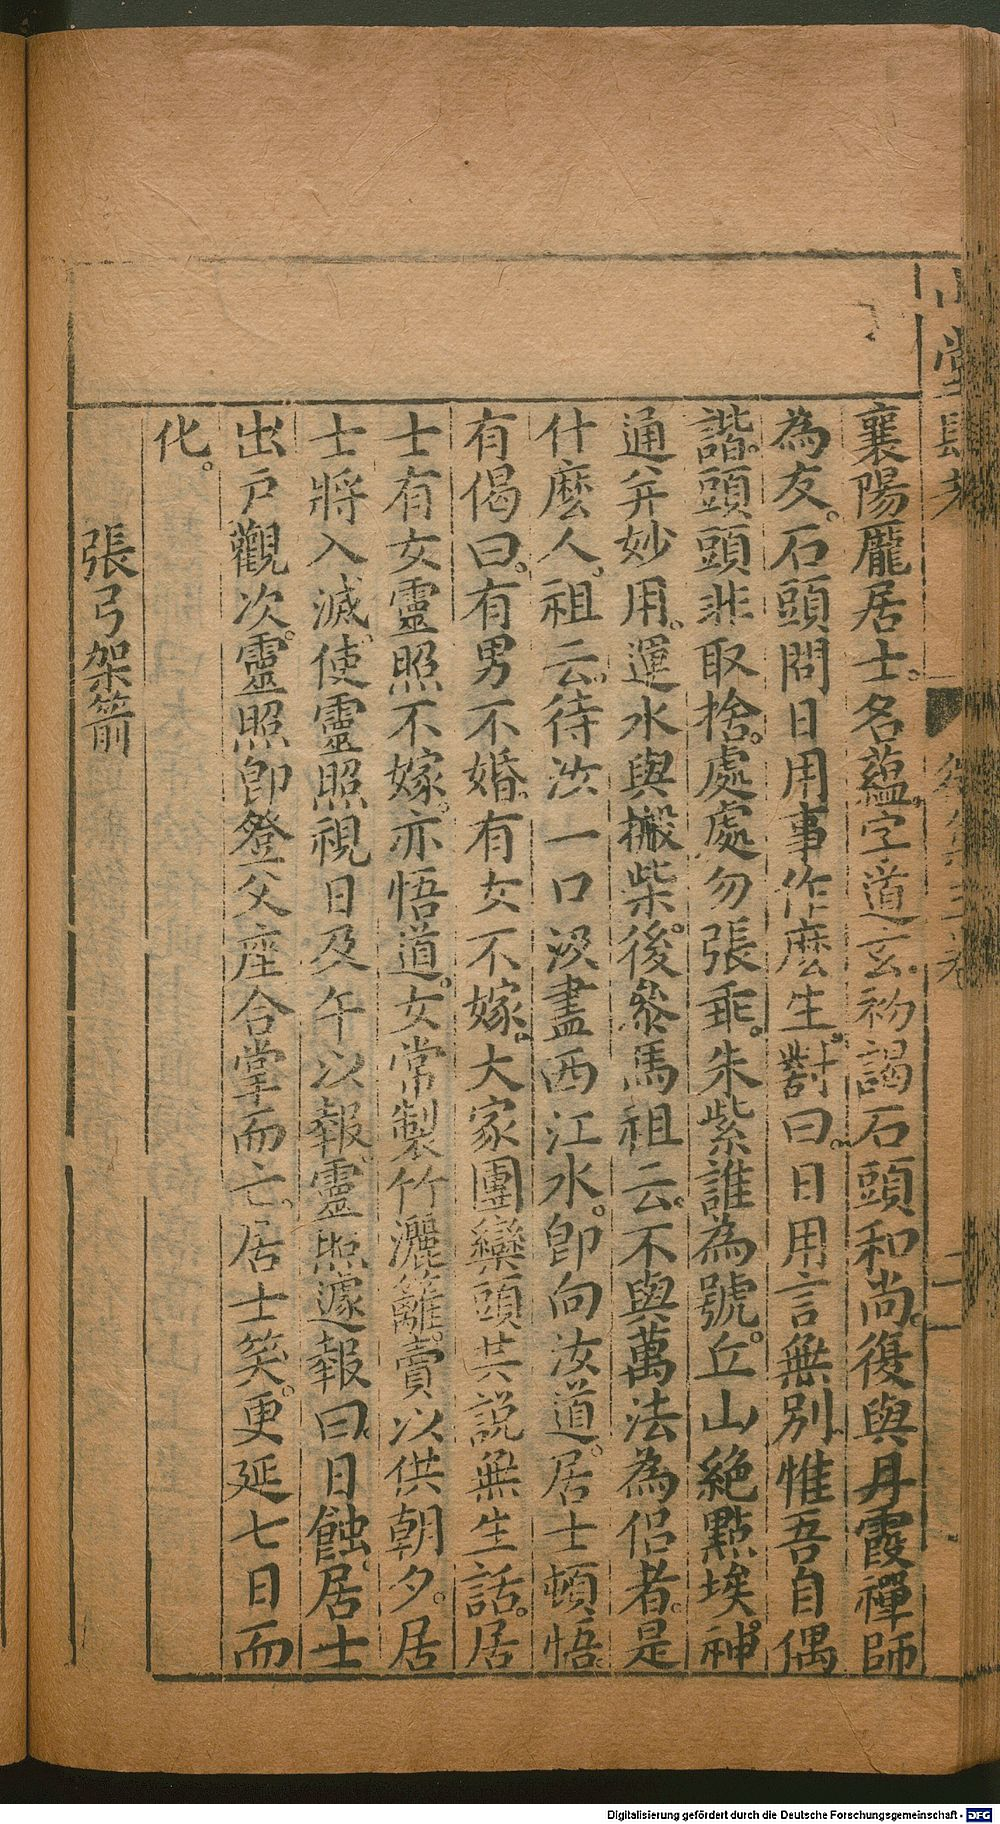 襄陽龐居士。名蘊。字道玄。初謁石頭和尚。復與丹霞禪師
為友。石頭問日用事作麽生。對曰。日用言無別。惟吾自偶
諧。頭頭非取捨。處處勿張乖。朱紫誰為號。丘山絶點埃。神
通并妙用。運水與搬柴。後參馬祖云。不與萬法為侣者。是
什麽人。祖云。待汝一口汲盡西江水。即向汝道。居士頓悟。
有偈曰。有男不婚。有女不嫁。大家團欒頭。共説無生話。居
士有女靈照不嫁。亦悟道。女常製竹灑籬。賣以供朝夕。居
士將入滅。使靈照視日及午以報。靈照遽報曰。日蝕。居士
出戶觀次。靈照即登父座合掌而亡。居士笑。更延七日而
化。
張弓架箭
Digitalisierung gefördert durch die Deutsche Forschungsgemeinschaft - DFG